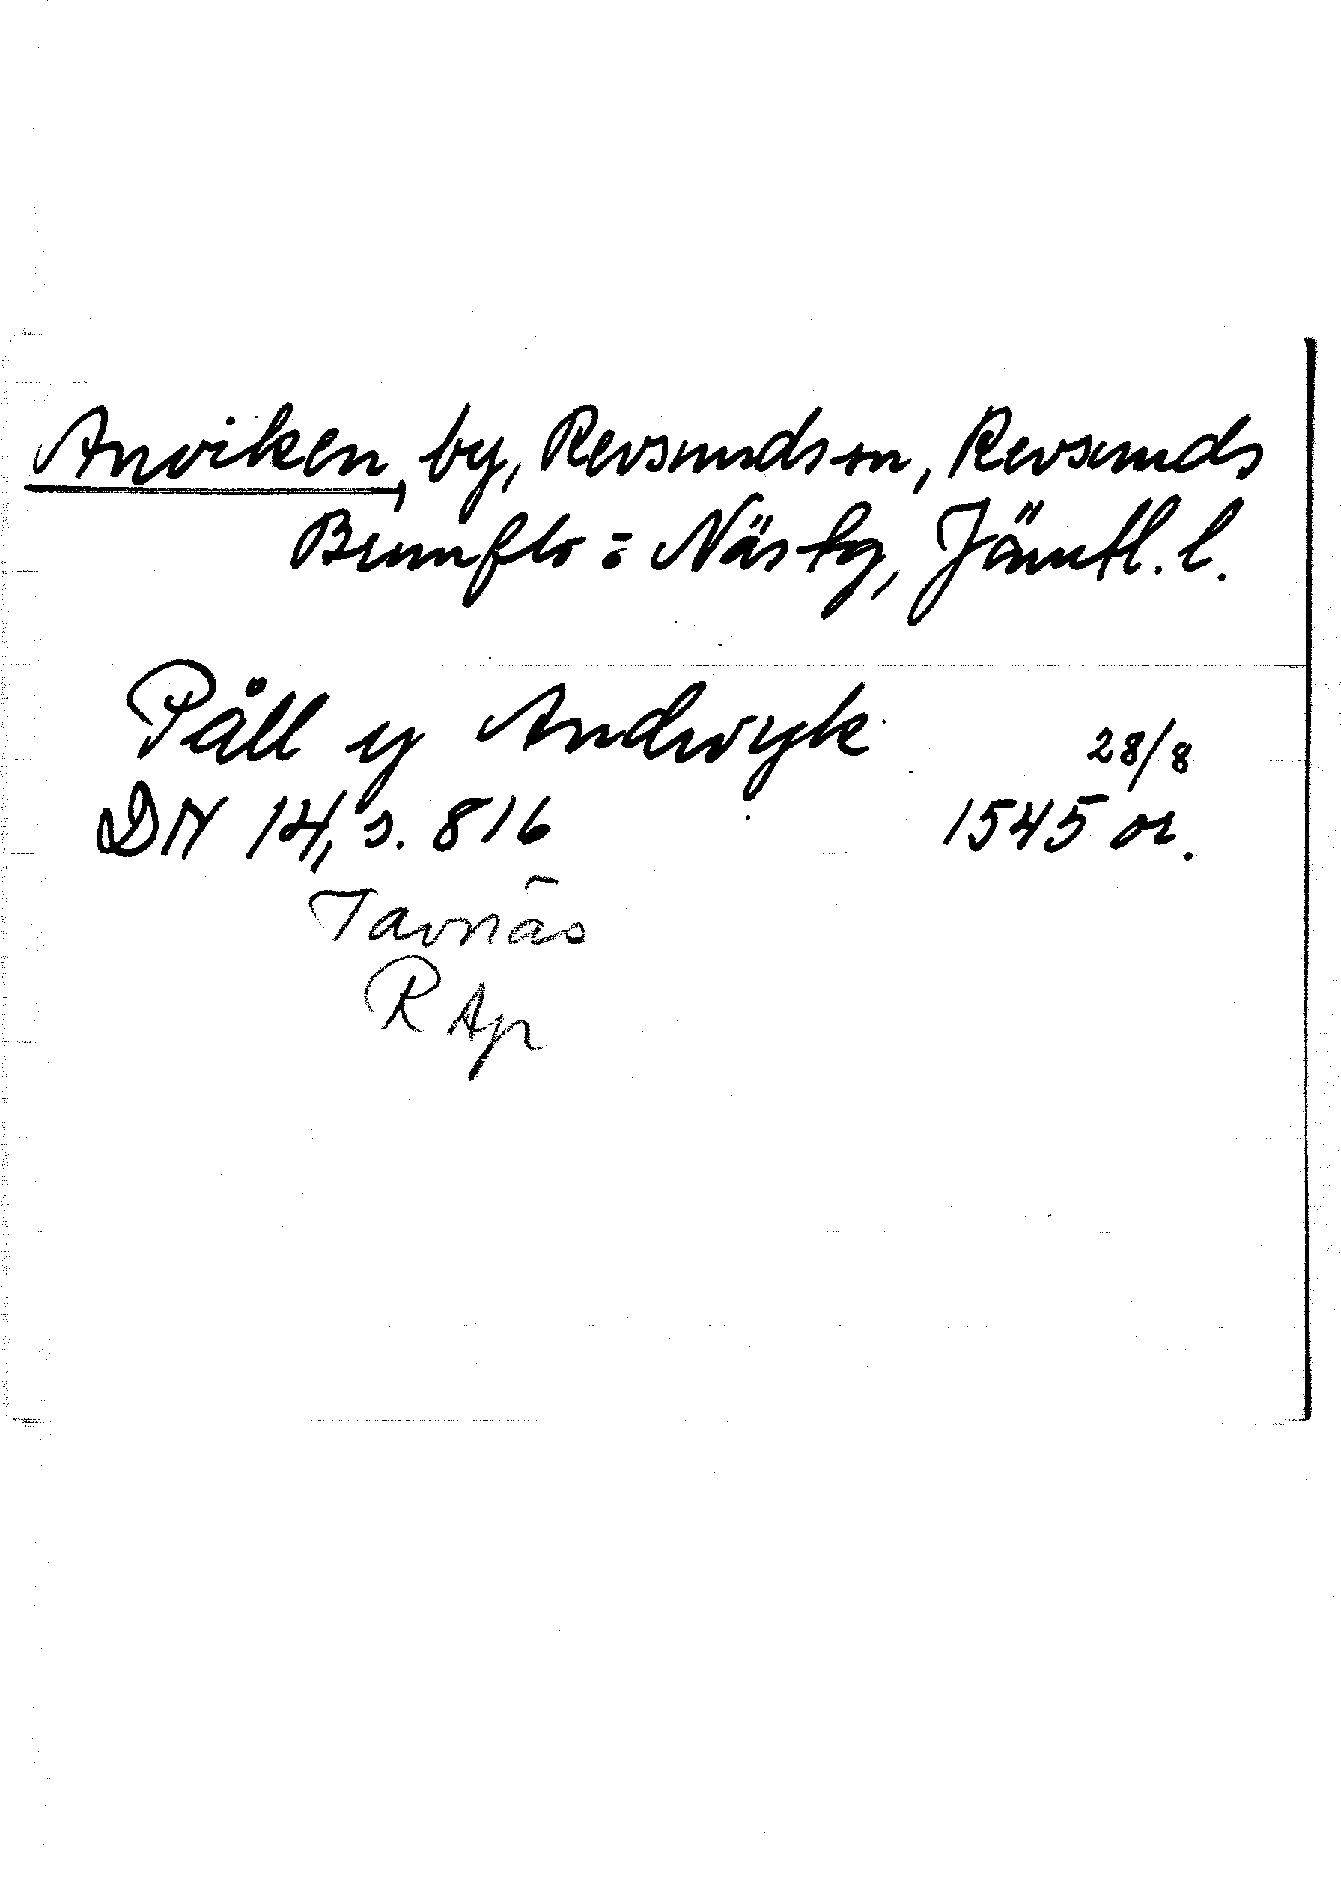 Anviken, by, Revsunds sn, Revsunds
Brunflo o Näs tg, Jämtl. l.
Påll y Andwyk 28/8
DN 14, s. 816 1545 or.
Tavnäs